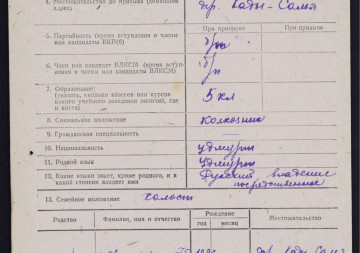 4. Местожительство до призыва (домашний адрес)
др. Кады-Салья
При призыве
При приеме
5. Партийность (время вступления в члены или кандидаты ВКП(б)
б/п
6. Член или кандидат ВЛКСМ (время вступления в члены или кандидаты ВЛКСМ)
б/п
7. Образование:
(указать, сколько классов или курсов какого учебного заведения окончил, где и когда)
5 кл.
8. Социальное положение
колхозник
9. Гражданская специальность
10. Национальность
удмурт
11. Родной язык
удмурт
12. Какие языки знает, кроме родного, и в какой степени владеет ими
Русский владение
посредственное
13. Семейное положение
холост
Родство
Фамилия, имя и отчество
Рождение
год
месяц
Местожительство
др. Кады-Салья